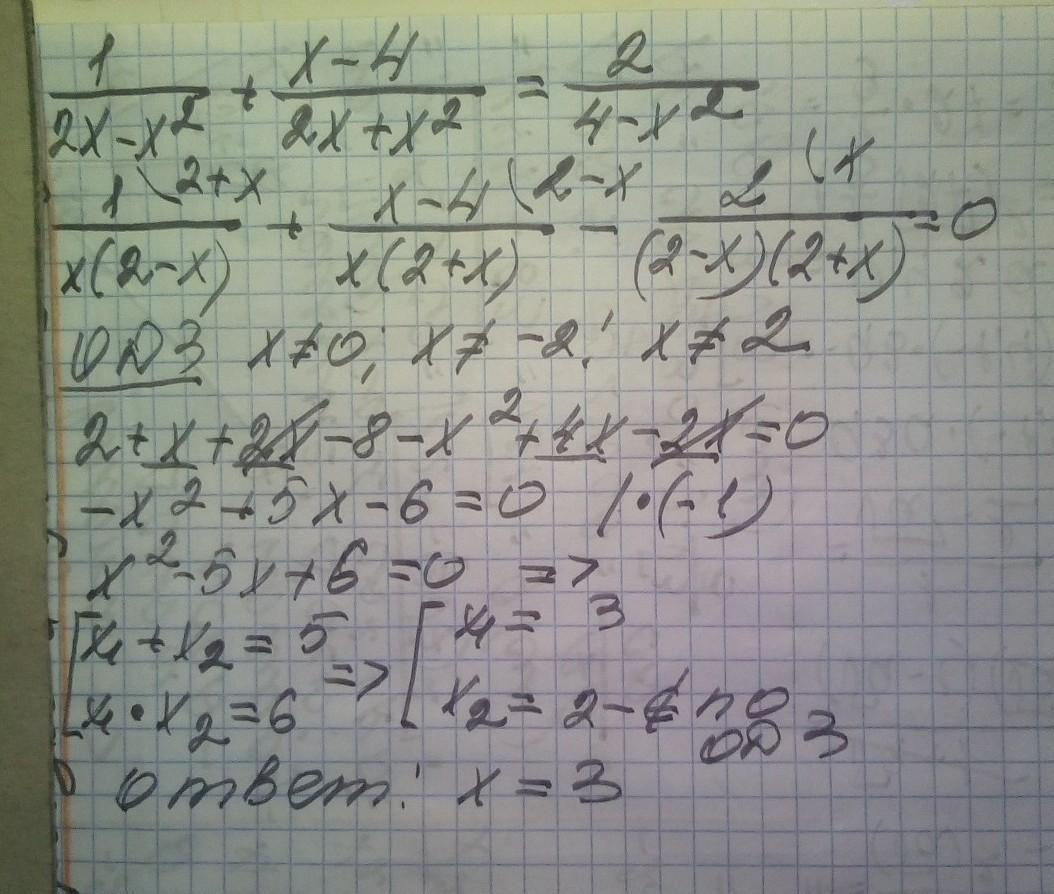 1/(2x-x²) + (x-4)/(2x+x²) = 2/(4-x²)
1(2+x/(x(2-x)) + x-4(2-x/(x(2+x)) - 2(x/((2-x)(2+x)) = 0
ОДЗ x≠0; x≠-2; x≠2
2+x+2x-8-x²+4x-2x=0
-x²+5x-6=0 /•(-1)
x²-5x+6=0 =>
[x₁+x₂=5 => [x₁=3
x₁•x₂=6 x₂=2-∉ по
ОДЗ
ответ: x=3